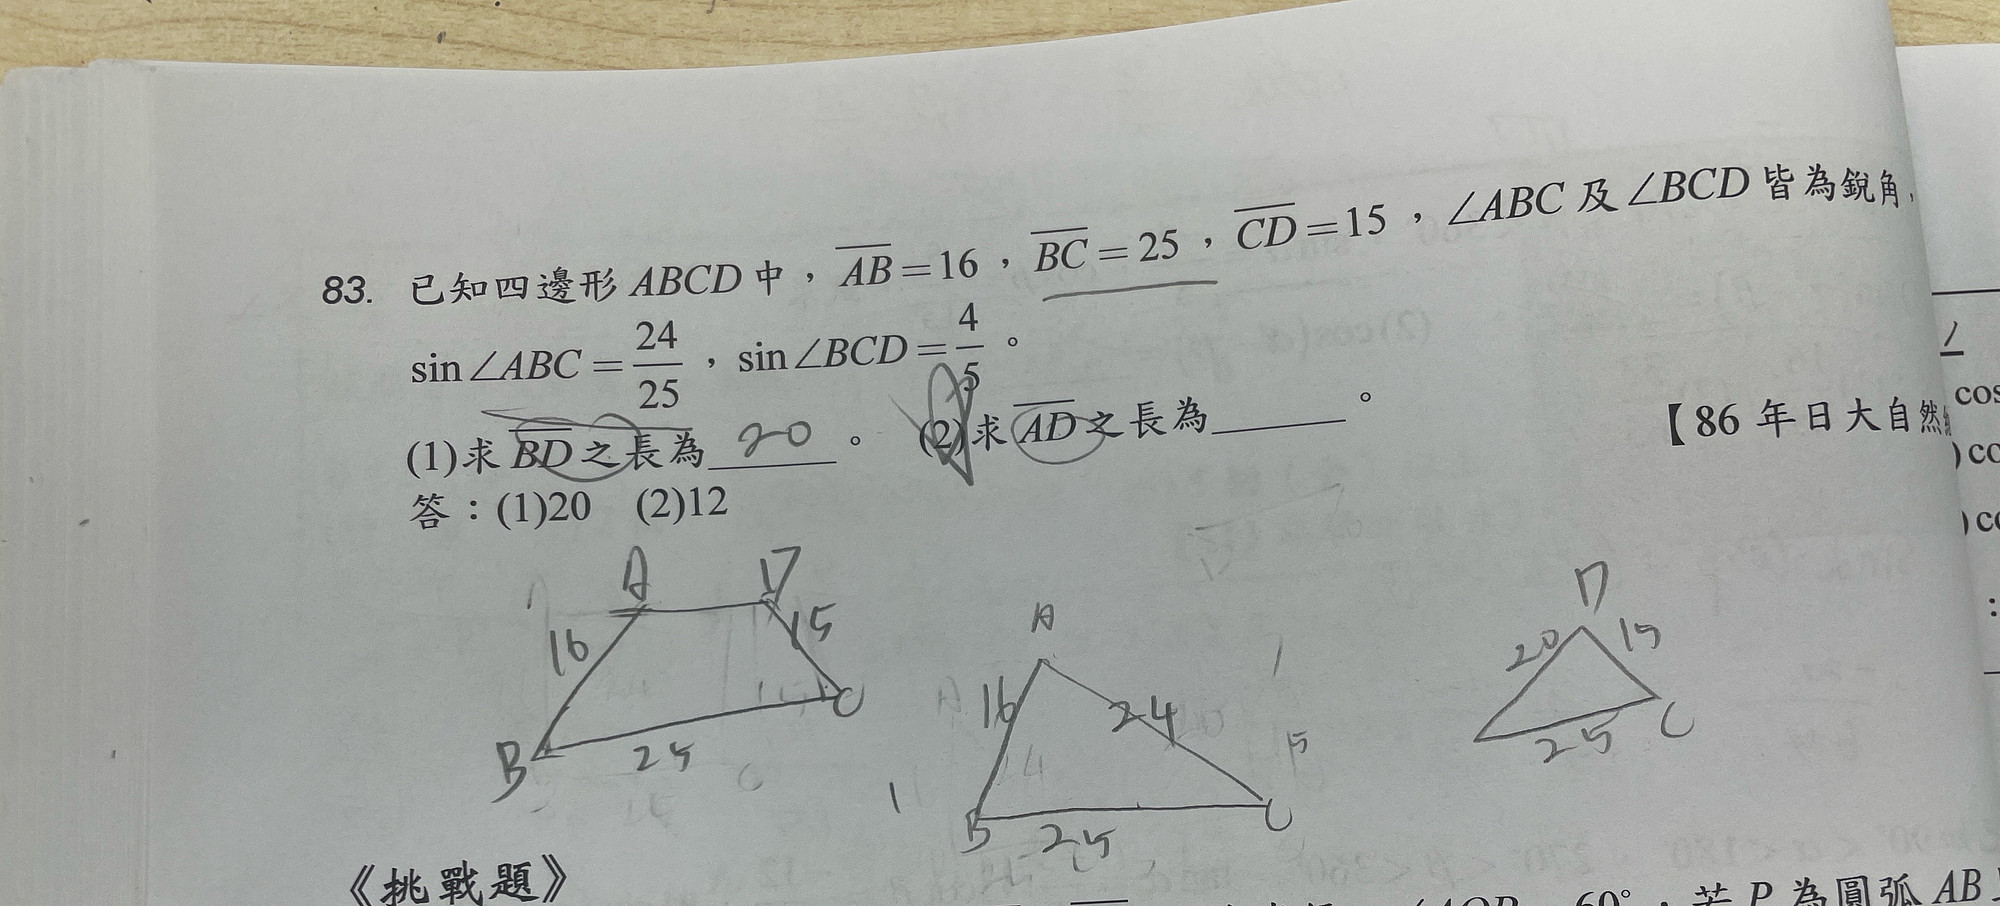 83. 已知四邊形 ABCD 中，AB=16，BC=25，CD=15，∠ABC 及 ∠BCD 皆為銳角，
sin∠ABC=24/25，sin∠BCD=4/5。
(1)求 BD 之長為 20 。 (2)求 AD 之長為______。
【86 年日大自然
答：(1)20 (2)12
A D
16 15
B 25 C
A
16 24
B 25 C
D
20 15
25 C
《挑戰題》
60°，若 P 為圓弧 AB
cos